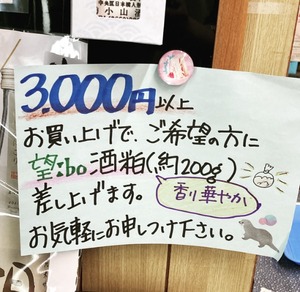 中央区日本橋人形
小山
3,000円以上
お買い上げで、ご希望の方に
望:bo酒粕(約200g)
差し上げます。
香り華やか
お気軽にお申しつけ下さい。